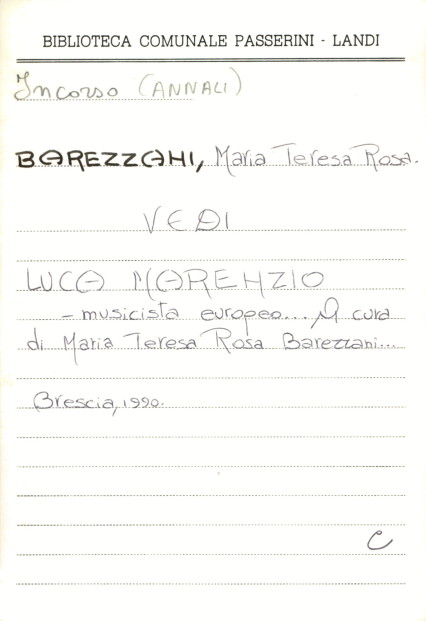 BIBLIOTECA COMUNALE PASSERINI - LANDI
In corso (ANNALI)
BAREZZANI, Maria Teresa Rosa.
VEDI
LUCA MARENZIO
- musicista europeo... A cura
di Maria Teresa Rosa Barezzani...
Brescia, 1990.
C